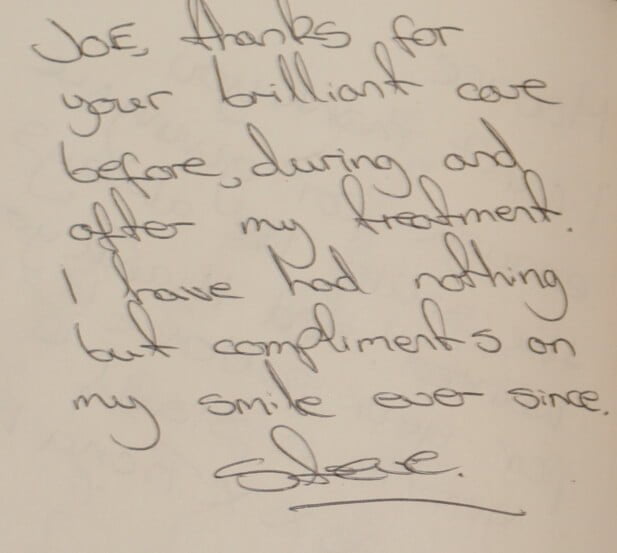 JOE, thanks for
your brilliant care
before, during and
after my treatment.
I have had nothing
but compliments on
my smile ever since.
Steve.